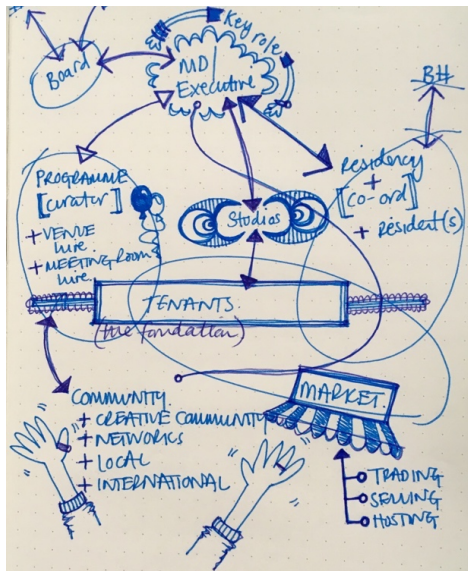 Key role
Board
MD/
Executive
B#
PROGRAMME
[curator]
+ VENUE
hire.
+ MEETING Rooms
hire.
Studios
Residency
+
[co-ord]
+ Résident(s)
TENANTS
(the foundation)
COMMUNITY
+ CREATIVE COMMUNITY
+ NETWORKS
+ LOCAL
+ INTERNATIONAL
MARKET.
TRADING
SELLING
HOSTING